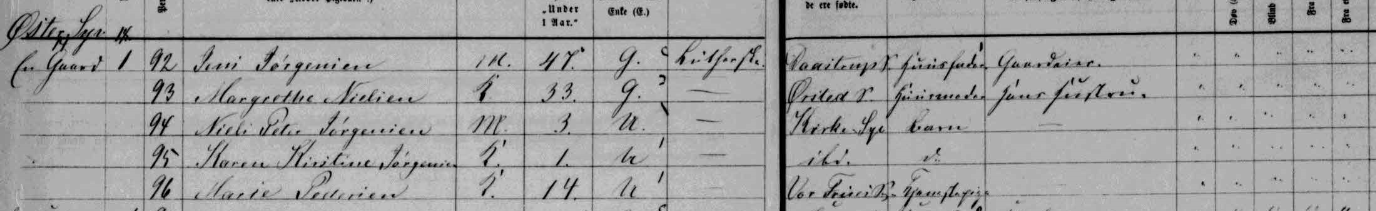 "Under 1 Aar." Enke (E.) de ere fødte.
Øster Syv
En Gaard 1 92 Jens Jørgensen M. 47. G. Luthersk. Daastrup S. Huusfader Gaardeier.
93 Margrethe Nielsen K. 33. G. — Ørsted S. Huusmoder Hans Hustru.
94 Niels Peter Jørgensen M. 3. U. — Kirke Syv Barn —
95 Karen Kirstine Jørgensen K. 1. U — ibd. do
96 Marie Pedersen K. 14. U — Vor Frue S. Tjenestepige